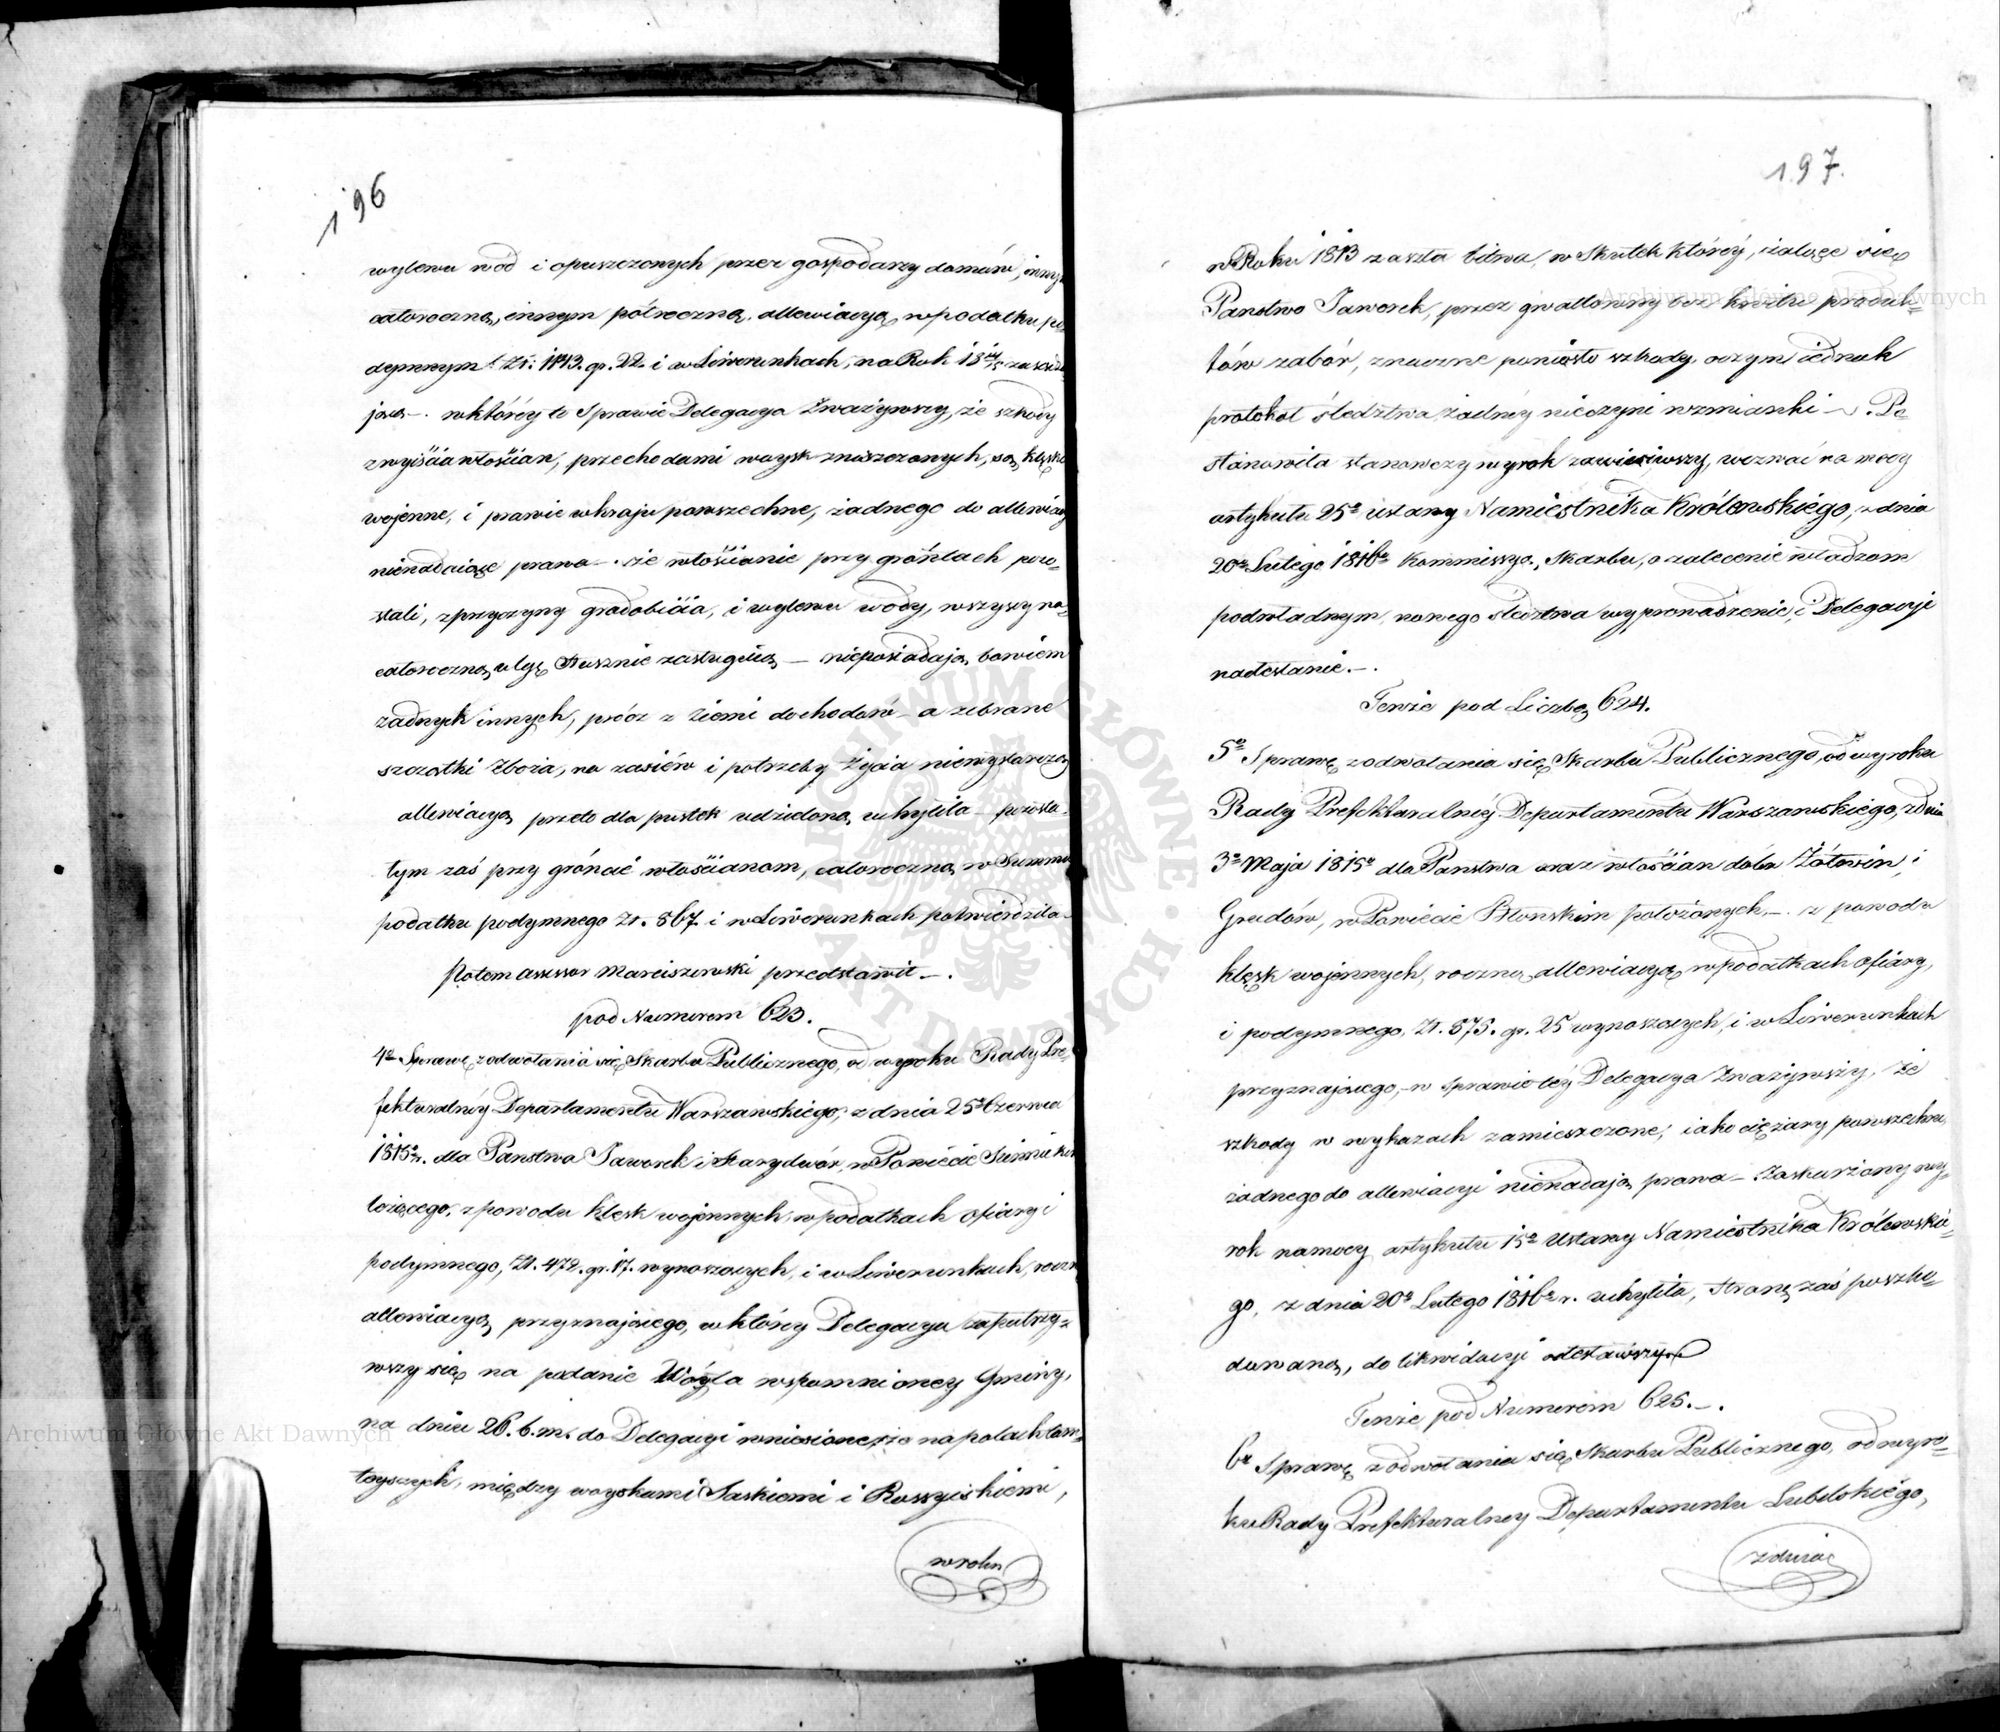 196
wylewu wód i opuszczonych przez gospodarzy domów, innym
całoroczną, innym półroczną, allewiacyą w podatku po-
dymnym Zł: 1143. gr. 22. i w Liwerunkach, na Rok 18
jącą —. w którey to Sprawie Delegacya Zważywszy, że szkody
z wyiścia włościan, przechodami woysk zniszczonych, są klęską
wojenne, i prawie w kraju powszechne, żadnego do allewiacyi
nienadaiące prawa — że włościanie przy gróntach pozo-
stali, z przyczyny gradobicia, i wylewu wody, wszyscy na
całoroczną ulgę słusznie zasługuią — nieposiadają bowiem
żadnych innych, prócz z ziemi dochodów — a zebrane
szczątki zboża, na zasiéw i potrzeby życia niewystarczą
allewiacyą przeto dla pustek udzieloną uchyliła — pozosta-
tym zaś przy gróncie włościanom, całoroczną w Summie
podatku podymnego Zł. 867. i w Liwerunkach potwierdziła —
Potem Assessor Marciszewski przedstawił —.
pod Numerem 623.
4te Sprawę z odwołania się Skarbu Publicznego, od wyroku Rady Pre-
fekturalnéy Departamentu Warszawskiego, z dnia 25o Czerwca
1815 r. dla Państwa Jaworek i Starydwór, w Powiecie
leżącego, z powodu klęsk wojennych, w podatkach ofiary i
podymnego, Zł. 472. gr. 17. wynoszących, i w Liwerunkach, roczn
allewiacyą przyznającego, w którey Delegacya zapatrzy-
wszy się na podanie Wóyta wspomnioney Gminy,
na dniu 26. b. m. do Delegacyi wniesione, że na polach tam-
tejszych, między woyskami Saskiemi i Rossyiskiemi,
w roku
197.
w Roku 1813 zaszła bitwa, w Skutek któréy, żaląc się
Państwo Jaworek, przez gwałtowny bez kwitu produk-
tów zabór, znaczne poniosło szkody, o czym iednak
protokół śledztwa żadnéy nieczyni wzmianki —. Po
stanowiła stanowczy wyrok zawiesiwszy, wezwać na mocy
artykułu 25o ustawy Namiestnika Królewskiego, z dnia
20o Lutego 1816o Kommissyą Skarbu, o zalecenie władzom
podwładnym, nowego śledztwa wyprowadzenie, i Delegacyi
nadesłanie. —.
Tenże pod Liczbą 624.
5o Sprawę z odwołania się Skarbu Publicznego, od wyroku
Rady Prefekturalnéy Departamentu Warszawskiego, z dnia
3o Maja 1815o dla Państwa oraz włościan dóbr Żółwin, i
Grudów, w Powiecie Błońskim położonych, — z powodu
klęsk wojennych, roczną allewiacyą w podatkach ofiary,
i podymnego, Zł. 575. gr. 25 wynoszących, i w Liwerunkach
przyznającego, — w sprawie téy Delegacya Zważywszy, że
szkody w wykazach zamieszczone, iako ciężary powszechne,
żadnego do allewiacyi nienadają prawa — Zaskarżony wy-
rok na mocy artykułu 15o Ustawy Namiestnika Królewskie-
go, z dnia 20o Lutego 1816o r. uchyliła, Stronę zaś poszko-
dowaną, do likwidacyi odesławszy
Tenże pod Numerem 625. —.
6te Sprawę z odwołania się Skarbu Publicznego, od wyro-
ku Rady Prefekturalney Departamentu Lubelskiego,
z dnia
Archiwum Główne Akt Dawnych
Archiwum Główne Akt Dawnych
ARCHIWUM GŁÓWNE • AKT DAWNYCH •